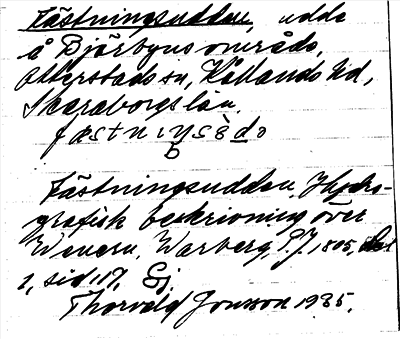 Fästningsudden, udde
å Bjärbyns område,
Otterstads sn, Kållands hd,
Skaraborgs län.
fæstnıŋsèdə
Fästningsudden, Hydro-
grafisk beskrivning över
Wenern, Warberg, P.J. 1805,
1, sid 117, Sj.
Thorvald Jonsson 1935.